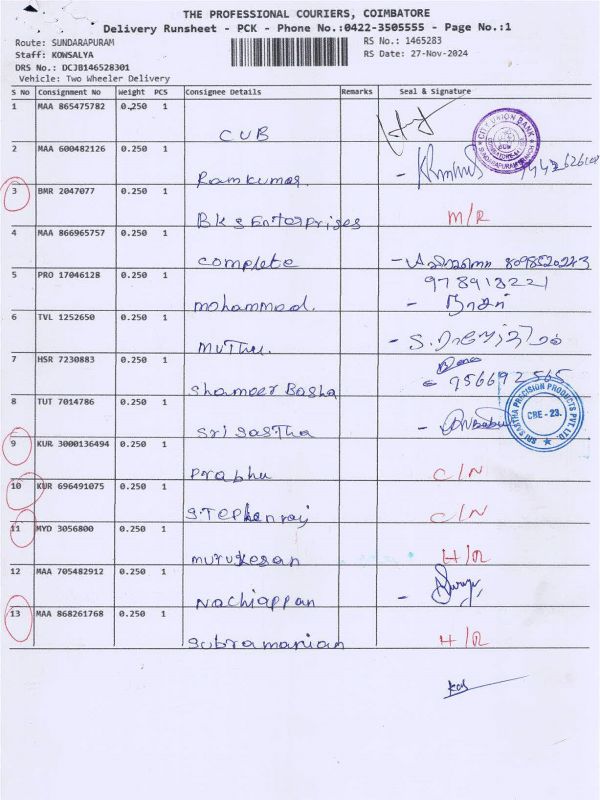 THE PROFESSIONAL COURIERS, COIMBATORE
Delivery Runsheet - PCK - Phone No.:0422-3505555 - Page No.:1
Route: SUNDARAPURAM RS No.: 1465283
Staff: KOWSALYA RS Date: 27-Nov-2024
DRS No.: DCJB146528301
Vehicle: Two Wheeler Delivery
S No Consignment No Weight PCS Consignee Details Remarks Seal & Signature
1 MAA 865475782 0.250 1
CUB
CITY UNION BANK
2 MAA 600482126 0.250 1
Ramkumar
3 BMR 2047077 0.250 1
BKS Enterprises M/R
4 MAA 866965757 0.250 1
complete 8098520243
5 PRO 17046128 0.250 1 978913221
mohammad.
6 TVL 1252650 0.250 1
muthu.
7 HSR 7230883 0.250 1
Shameer Basha 956692565
8 TUT 7014786 0.250 1
Sri Sastha
SRI SASTHA PRECISION PRODUCTS PVT. LTD.
CBE - 23.
9 KUR 3000136494 0.250 1
Prabhu C/N
10 KUR 696491075 0.250 1
STEPhenraj C/N
11 MYD 3056800 0.250 1
murukesan H/R
12 MAA 705482912 0.250 1
Nachiappan
13 MAA 868261768 0.250 1
Subramanian H/R